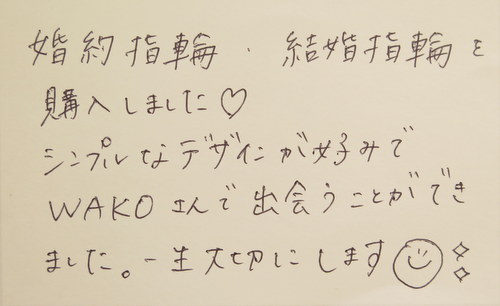 婚約指輪・結婚指輪を
購入しました♡
シンプルなデザインが好みで
WAKOさんで出会うことができ
ました。一生大切にします